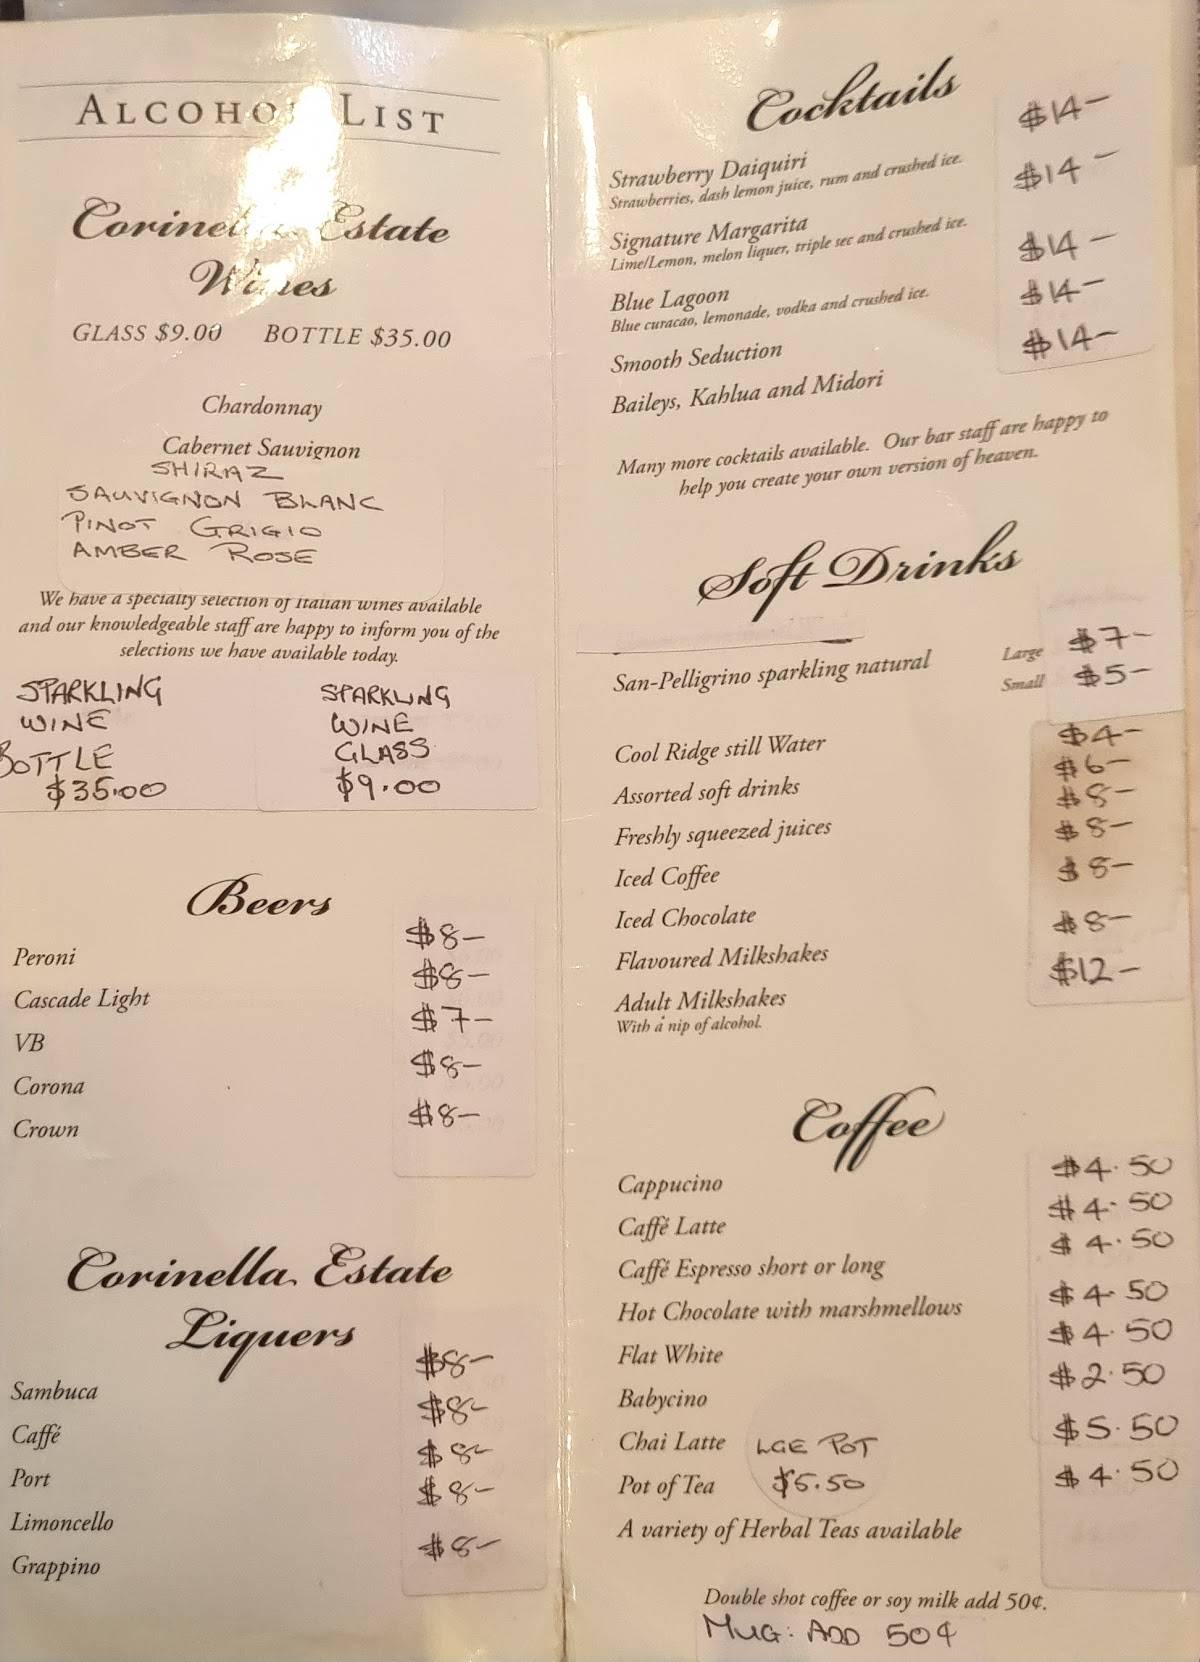 ALCOHO LIST
Corinella Estate
Wines
GLASS $9.00 BOTTLE $35.00
Chardonnay
Cabernet Sauvignon
SHIRAZ
SAUVIGNON BLANC
PINOT GRIGIO
AMBER ROSE
We have a specialty selection of Italian wines available
and our knowledgeable staff are happy to inform you of the
selections we have available today.
SPARKLING
WINE
BOTTLE
$35.00
SPARKLING
WINE
GLASS
$9.00
Beers
Peroni $8-
Cascade Light $8-
VB $7-
Corona $8-
Crown $8-
Corinella Estate
Liquers
Sambuca $8-
Caffé $8-
Port $8-
Limoncello $8-
Grappino $8-
Cocktails
Strawberry Daiquiri $14-
Strawberries, dash lemon juice, rum and crushed ice.
Signature Margarita $14-
Lime/Lemon, melon liquer, triple sec and crushed ice.
Blue Lagoon $14-
Blue curacao, lemonade, vodka and crushed ice.
Smooth Seduction $14-
Baileys, Kahlua and Midori $14-
Many more cocktails available. Our bar staff are happy to
help you create your own version of heaven.
Soft Drinks
San-Pelligrino sparkling natural Large $7-
Small $5-
Cool Ridge still Water $4-
Assorted soft drinks $6-
Freshly squeezed juices $8-
Iced Coffee $8-
Iced Chocolate $8-
Flavoured Milkshakes $8-
Adult Milkshakes $12-
With a nip of alcohol.
Coffee
Cappucino $4.50
Caffé Latte $4.50
Caffé Espresso short or long $4.50
Hot Chocolate with marshmellows $4.50
Flat White $4.50
Babycino $2.50
Chai Latte $5.50
Pot of Tea $4.50
LGE POT
$6.50
A variety of Herbal Teas available
Double shot coffee or soy milk add 50¢.
MUG: ADD 50¢